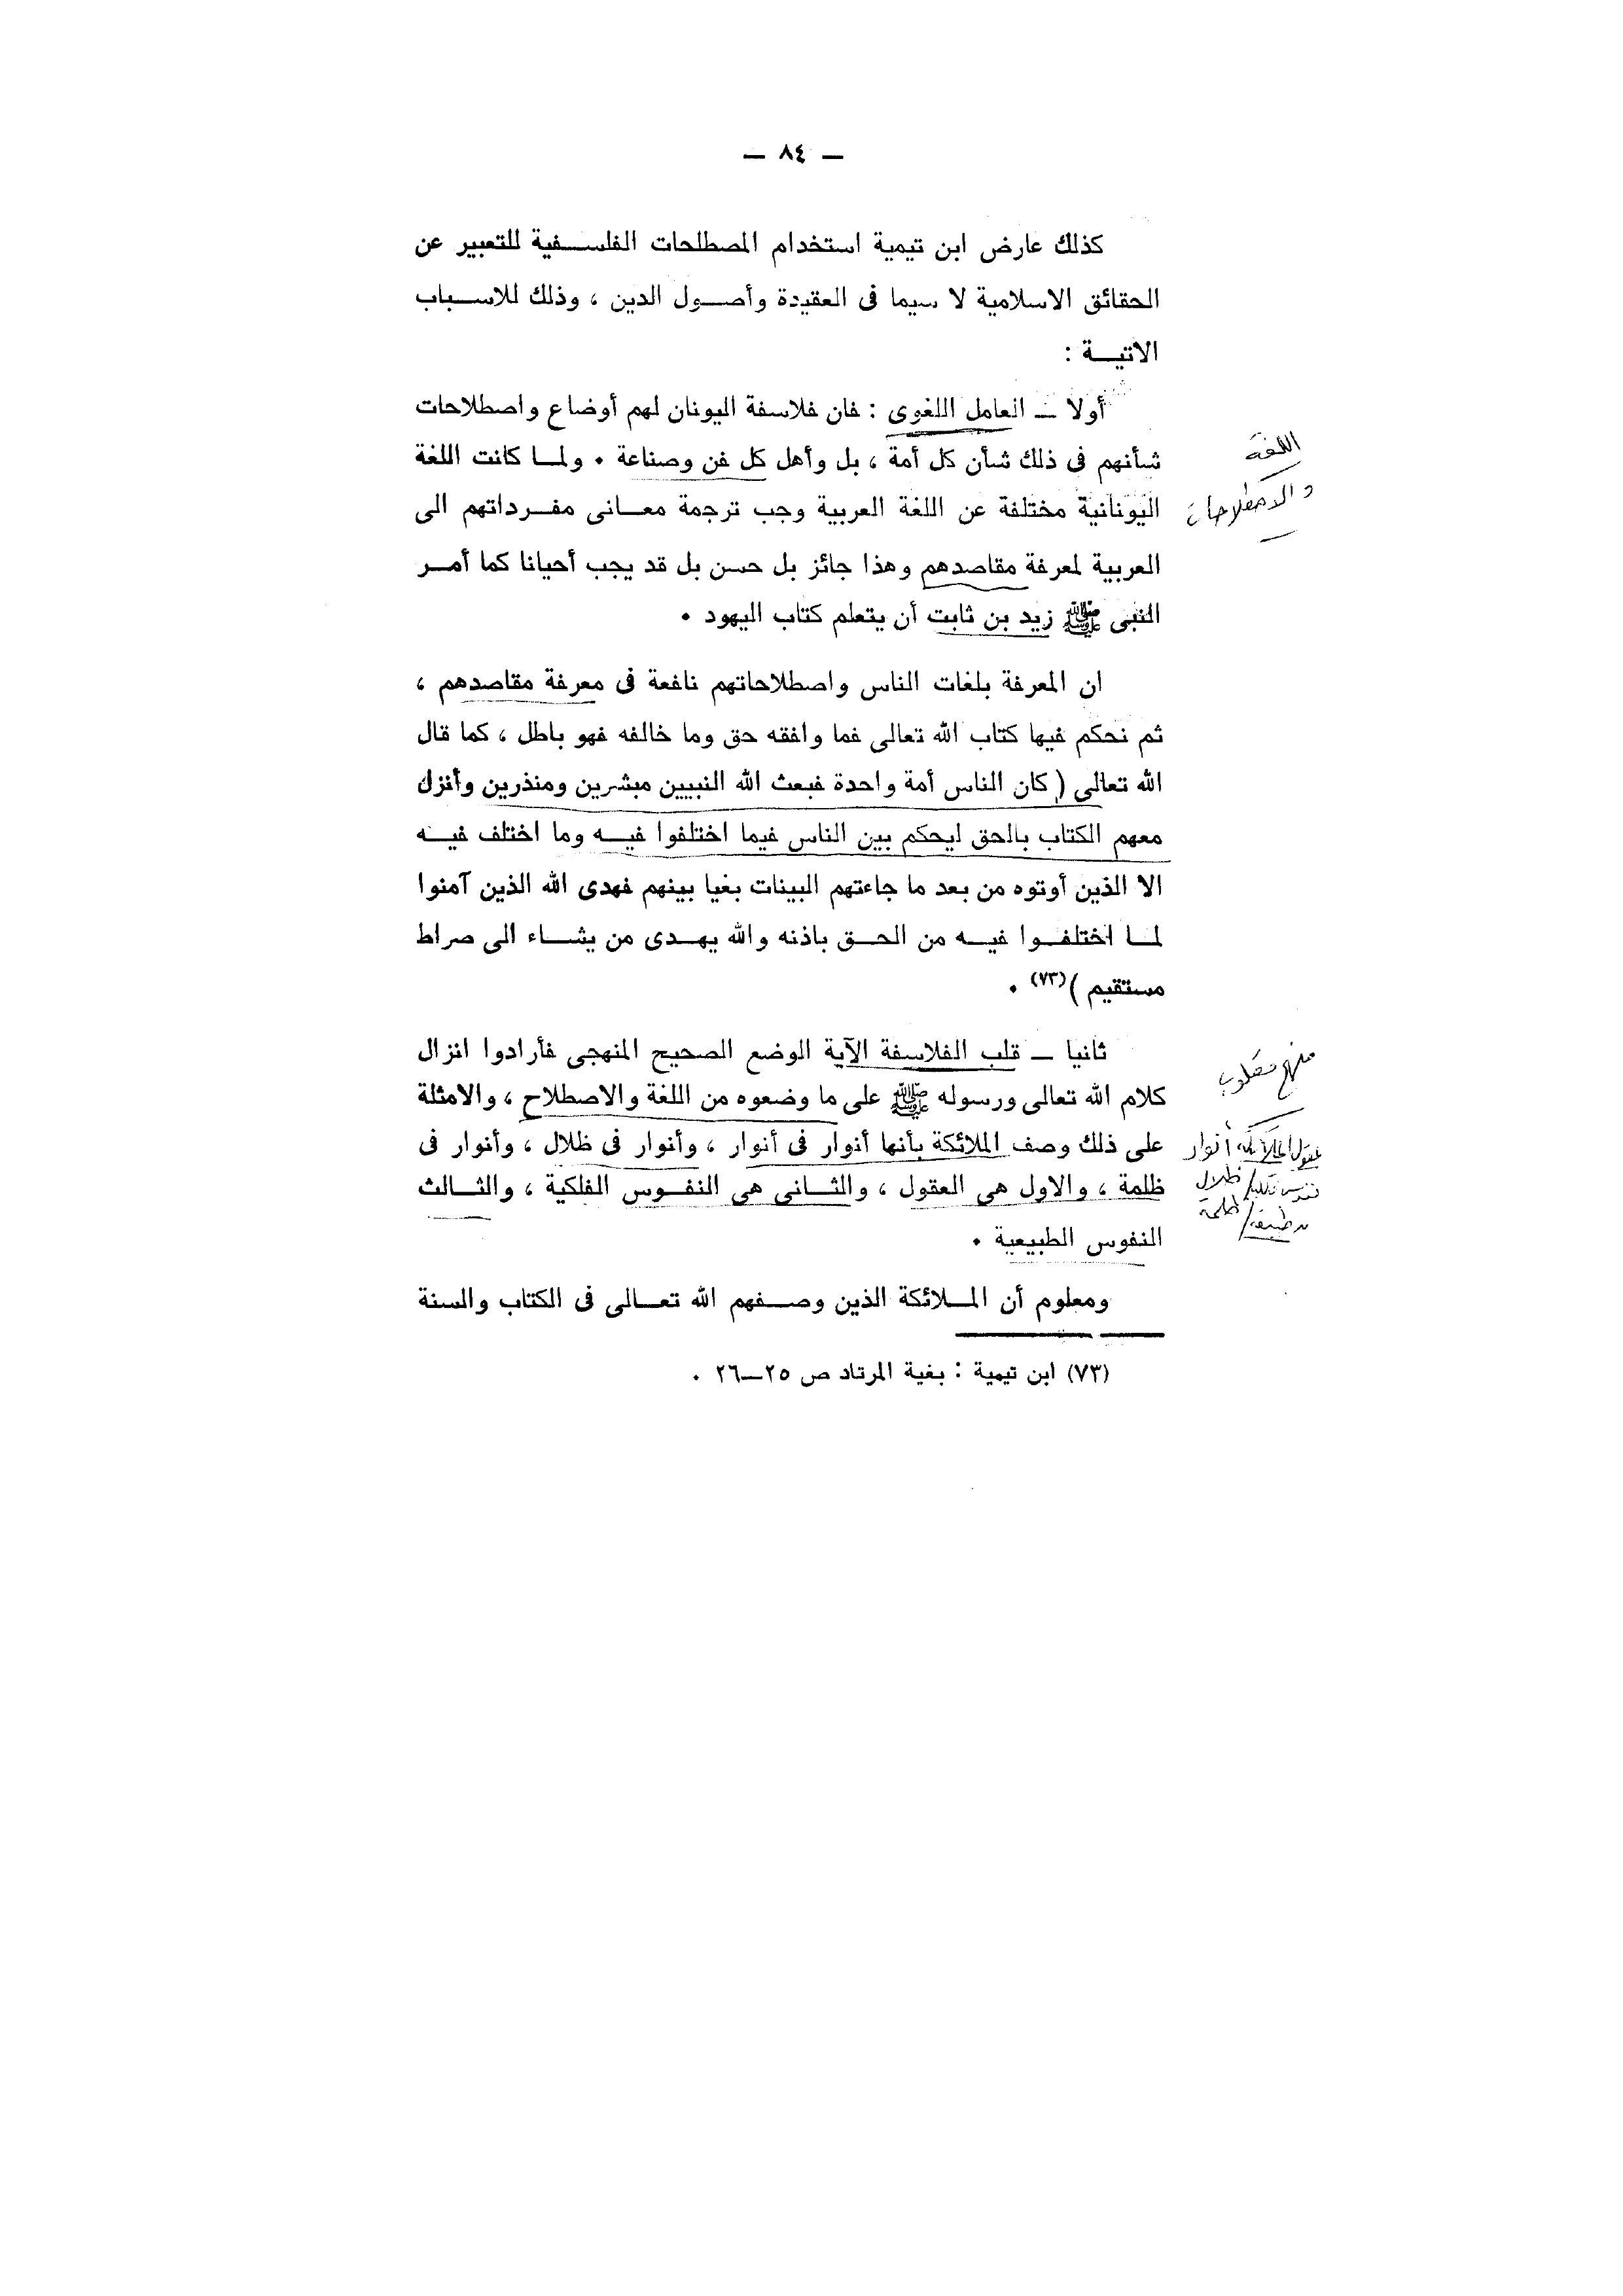 — ٨٤ —
كذلك عارض ابن تيمية استخدام المصطلحات الفلسفية للتعبير عن
الحقائق الاسلامية لا سيما فى العقيدة وأصول الدين ، وذلك للاسباب
الاتية :
أولا — العامل اللغوى : فان فلاسفة اليونان لهم أوضاع واصطلاحات
شأنهم فى ذلك شأن كل أمة ، بل وأهل كل فن وصناعة . ولما كانت اللغة
اليونانية مختلفة عن اللغة العربية وجب ترجمة معانى مفرداتهم الى
العربية لمعرفة مقاصدهم وهذا جائز بل حسن بل قد يجب أحيانا كما أمر
النبى ﷺ زيد بن ثابت أن يتعلم كتاب اليهود .
اللغة
والاصطلاحات
ان المعرفة بلغات الناس واصطلاحاتهم نافعة فى معرفة مقاصدهم ،
ثم نحكم فيها كتاب الله تعالى فما وافقه حق وما خالفه فهو باطل ، كما قال
الله تعالى ( كان الناس أمة واحدة فبعث الله النبيين مبشرين ومنذرين وأنزل
معهم الكتاب بالحق ليحكم بين الناس فيما اختلفوا فيه وما اختلف فيه
الا الذين أوتوه من بعد ما جاءتهم البينات بغيا بينهم فهدى الله الذين آمنوا
لما اختلفوا فيه من الحق باذنه والله يهدى من يشاء الى صراط
مستقيم )(٧٣) .
ثانيا — قلب الفلاسفة الآية الوضع الصحيح المنهجى فأرادوا انزال
كلام الله تعالى ورسوله ﷺ على ما وضعوه من اللغة والاصطلاح ، والامثلة
على ذلك وصف الملائكة بأنها أنوار فى أنوار ، وأنوار فى ظلال ، وأنوار فى
ظلمة ، والاول هى العقول ، والثانى هى النفوس الفلكية ، والثالث
النفوس الطبيعية .
منهج مقلوب
الملائكة أنوار
ظلال
ظلمة
ومعلوم أن الملائكة الذين وصفهم الله تعالى فى الكتاب والسنة
(٧٣) ابن تيمية : بغية المرتاد ص ٢٥—٢٦ .